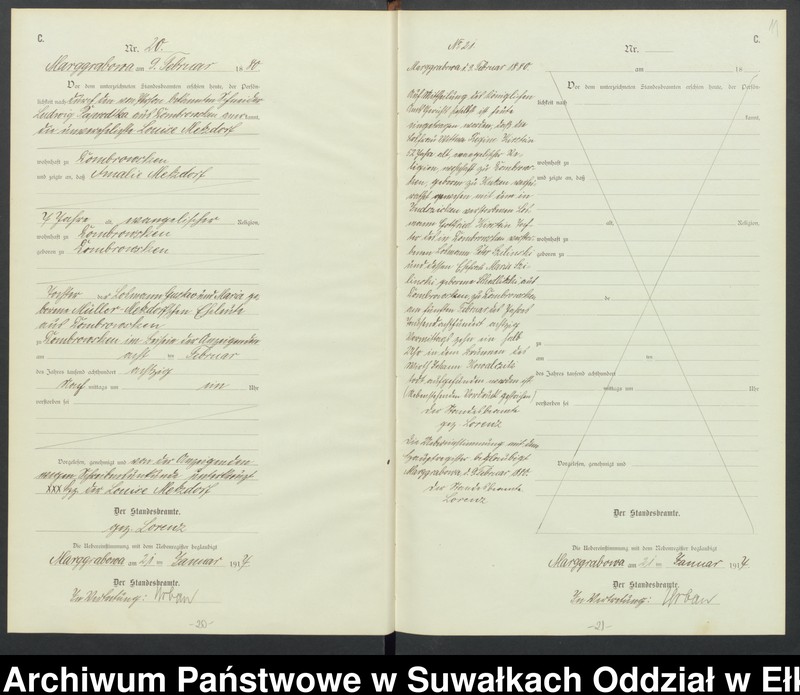 C.
Nr. 20.
Marggrabowa am 9. Februar 1880
Vor dem unterzeichneten Standesbeamten erschien heute, der Persön-
lichkeit nach durch den
Ludwig aus Kombrowcken anerkannt,
die unverehelichte Louise Metzdorf
wohnhaft zu Kombrowcken
und zeigte an, daß Amalie Metzdorf
7 Jahre a. evangelischer Religion,
wohnhaft zu Kombrowcken
geboren zu Kombrowcken
Tochter des Losmann Gustav und Maria ge-
borene Müller-Metzdorfschen Eheleute
aus Kombrowcken
zu Kombrowcken im Beisein der Anzeigenden
am acht ten Februar
des Jahres tausend achthundert achtzig
Nach mittags um ein Uhr
verstorben sei
Vorgelesen, genehmigt und von der Anzeigenden
wegen Schreibensunkunde unterkreuzt
XXX Hz. der Louise Metzdorf
Der Standesbeamte.
gez. Lorenz
Die Uebereinstimmung mit dem Nebenregister beglaubigt
Marggrabowa am 21 ten Januar 1914
Der Standesbeamte.
In Vertretung: Urban
-20-
11
C.
No 21
Marggrabowa d. 9. Februar 1880.
Auf Mittheilung des Königlichen
ist heute
eingetragen worden, daß die
Wittwe Regine
52 Jahre alt, evangelischer Re-
ligion, wohnhaft zu Kombrow-
cken, geboren zu
gewesen mit dem in
verstorbenen Los-
mann Gottfried Toch-
ter des in Kombrowcken verstor-
benen Losmann
und dessen Ehefrau Maria
geborene aus
Kombrowcken zu Kombrowcken
am fünften Februar des Jahres
tausend achthundert achtzig
Vormittags zehn ein halb
Uhr in dem Brunnen des
Wirth Johann
todt aufgefunden worden ist.
(Nebenstehender Vordruck gestrichen)
Der Standesbeamte
gez. Lorenz
Die Uebereinstimmung mit dem
Hauptregister beglaubigt
Marggrabowa, d. 9. Februar 1880.
Der Standesbeamte
Lorenz
Nr.
am 18
Vor dem unterzeichneten Standesbeamten erschien heute, der Persön-
lichkeit nach
kannt,
wohnhaft zu
und zeigte an, daß
alt, Religion,
wohnhaft zu
geboren zu
de
zu
am ten
des Jahres tausend achthundert
mittags um Uhr
verstorben sei
Vorgelesen, genehmigt und
Der Standesbeamte.
Die Uebereinstimmung mit dem Nebenregister beglaubigt
Marggrabowa am 21 ten Januar 1914.
Der Standesbeamte.
In Vertretung: Urban
-21-
Archiwum Państwowe w Suwałkach Oddział w Eł